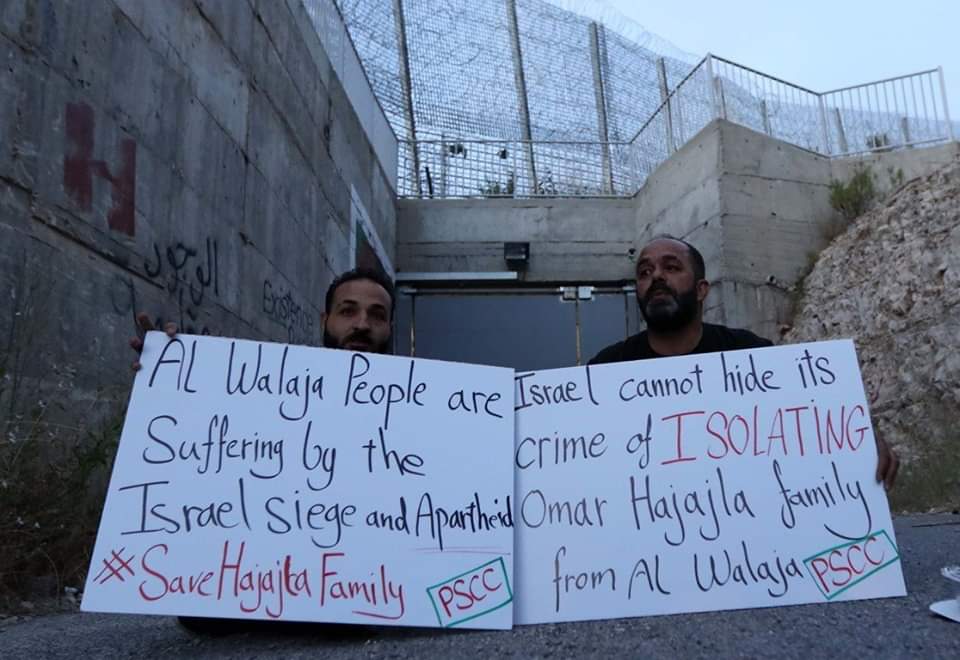 AL Walaja People are
Suffering by the
Israel siege and Apartheid
#Save Hajajla Family
PSCC
Israel cannot hide its
crime of ISOLATING
Omar Hajajla family
from Al Walaja
PSCC
Existence